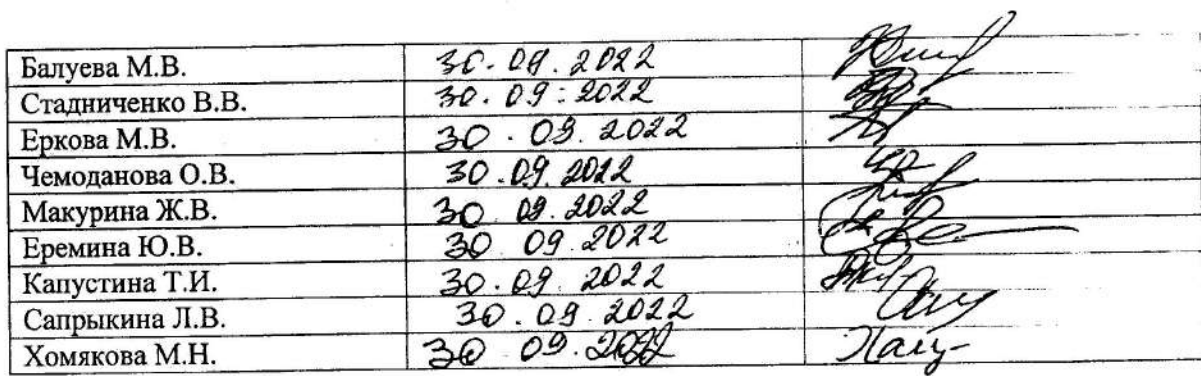 Балуева М.В. 30.09.2022
Стадниченко В.В. 30.09.2022
Еркова М.В. 30.09.2022
Чемоданова О.В. 30.09.2022
Макурина Ж.В. 30.09.2022
Еремина Ю.В. 30.09.2022
Капустина Т.И. 30.09.2022
Сапрыкина Л.В. 30.09.2022
Хомякова М.Н. 30.09.2022